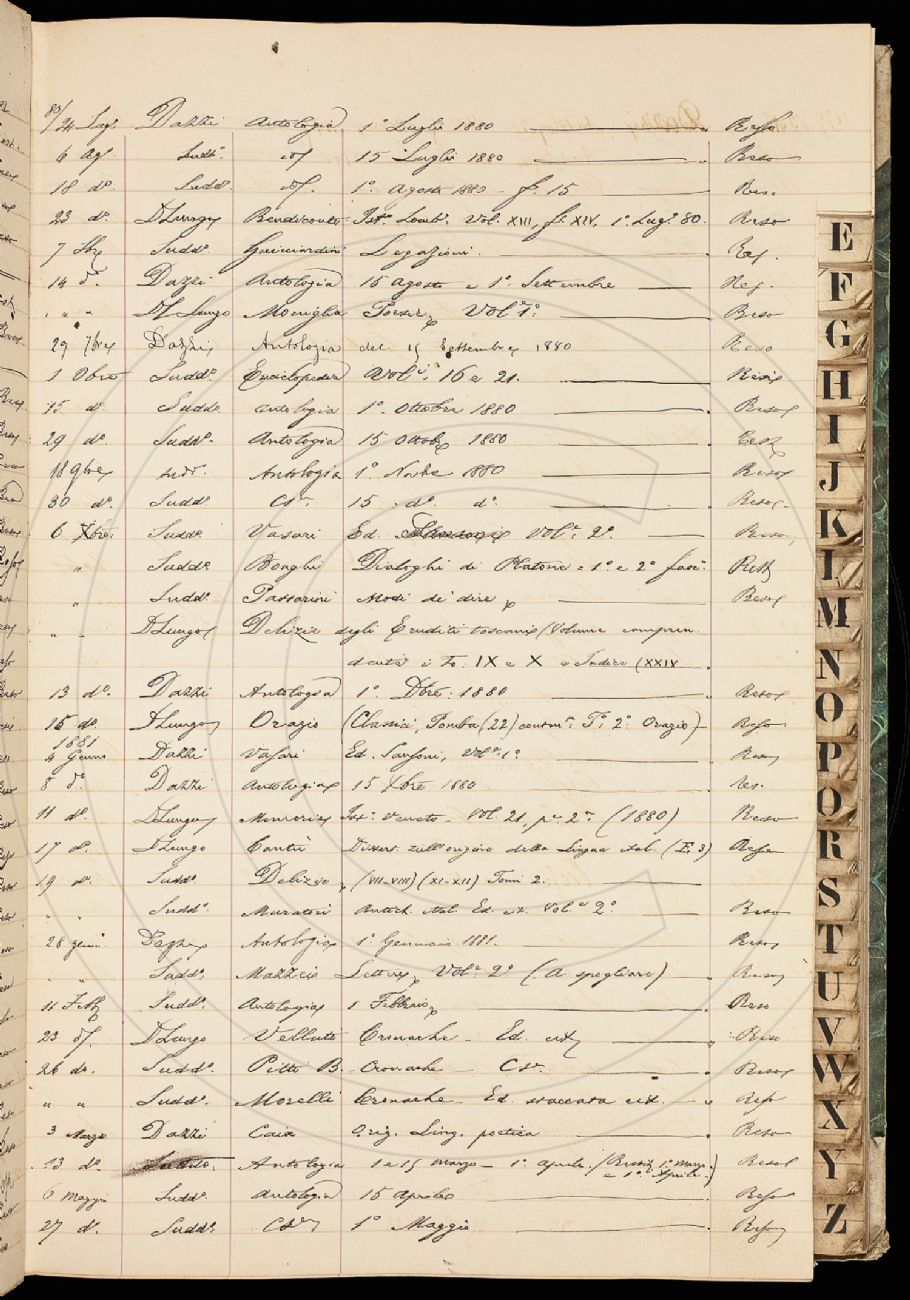 80/
24 Lug. Dazzi Antologia 1° Luglio 1880 Reso
6 Ag. Sudd°. id 15 Luglio 1880 Reso
18 d°. Sudd°. id. 1°. Agosto 1880 - f. 15 Res.
23 d°. D'Lungo Rendiconti Ist° Lomb°. Vol. XIII, f. XIV, 1° Lug° 80. Reso
7 Sudd°. Guicciardini Legazioni.
14 d°. Dazzi Antologia 15 Agosto e 1° Settembre
" " " D'Lungo Moniglia Poesie, Vol° 1°. Reso
29 7bre Dazzi Antologia del 15 Settembre 1880 Reso
1 Obre Sudd°. Enciclopedia Vol. 16 e 21.
15 d°. Sudd°. Antologia 1°. Ottobre 1880 Reso
29 d°. Sudd°. Antologia 15 Ottobre 1880
18 9bre sudd°. Antologia 1°. Nobre 1880 Reso
30 d°. Sudd°. 15 d°. d°. Reso
6 Xbre. Sudd°. Vasari Ed. Vol°. 2°. Reso
" Sudd°. Bonghi Dialoghi di Platone 1°. e 2° fasc.
" Sudd°. Passarini Modi di dire Reso
" " D'Lungo Delizie degli Eruditi toscani (Volume compren
denti i To. IX e X e Indice (XXIV
13 d°. Dazzi Antologia 1°. Dbre. 1880 Reso
15 d°. D'Lungo Orazio (Classici, Pomba (22) T° 2° Orazio) Reso
1881
4 Genn Dazzi Vasari Ed. Sansoni, Vol°. 1° Reso
8 d°. Dazzi Antologia 15 Xbre 1880 Res.
11 d°. D'Lungo Memorie Ist°. Veneto - Vol. 21, p°. 2°. (1880) Reso
17 d°. D'Lungo Cantù Dissert. sull'origine della Lingua ital. (E. 3) Reso
19 d°. Sudd°. Delizie (VII-VIII) (XI-XII) Tomi 2.
" " Sudd°. Muratori Antich. Ital. Ed. Vol° 2° Reso
28 genn Dazzi Antologia 1°. Gennaio 1881. Reso
" " Sudd°. Mazzei Lettere, Vol°. 2° (a spogliare) Reso
11 Febb Sudd°. Antologia 1 Febbraio Reso
23 d° D'Lungo Velluti Cronache - Ed. cit Reso
26 d°. Sudd°. Pitti B. Cronache Reso
" " Sudd°. Morelli Cronache - Ed. staccata cit. Reso
3 Marzo Dazzi Caix Orig. Ling. poetica Reso
13 d°. Sudd°. Antologia 1 e 15 Marzo - 1°. Aprile. (Resti 1° Marzo
e 1° Aprile.) Reso
6 Maggio Sudd°. Antologia 15 Aprile Reso
27 d°. Sudd°. 1° Maggio Reso
E
F
G
H
I
J
K
L
M
N
O
P
Q
R
S
T
U
V
W
X
Y
Z